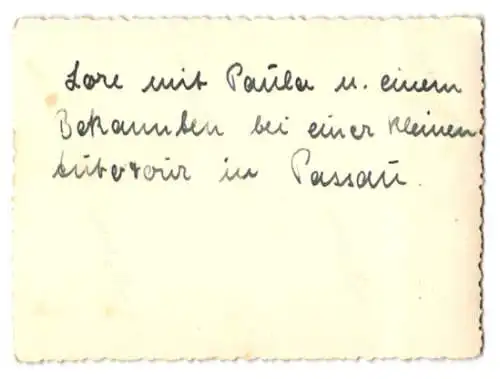 Lore mit Paula u. einem
Bekannten bei einer kleinen
Autotour in Passau.